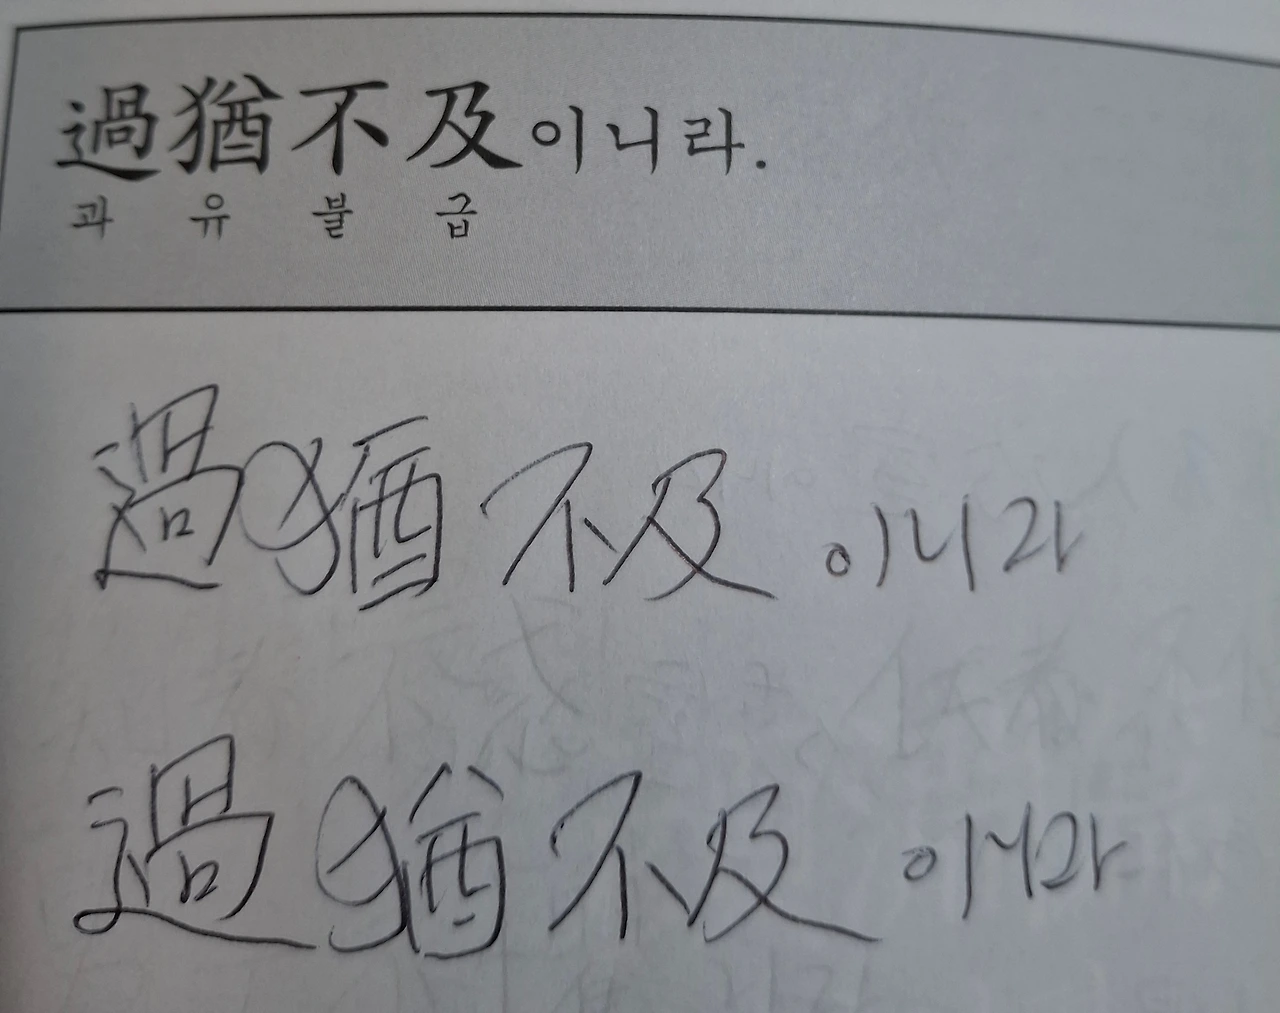 過猶不及이니라.
과 유 불 급
過猶不及 이니라
過猶不及 이니라